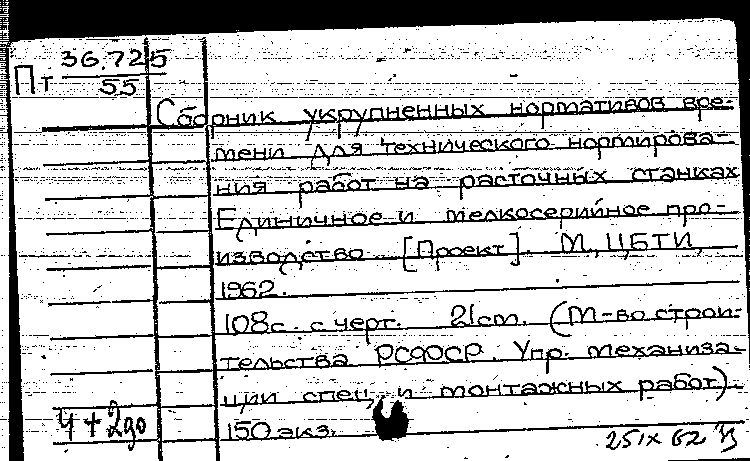 Пт 36.725
55
Сборник укрупненных нормативов вре-
мени для технического нормирова-
ния работ на расточных станках
Единичное и мелкосерийное про-
изводство [Проект]. М., ЦБТИ,
1962.
108с. с черт. 21cm. (М-во строи-
тельства РСФСР. Упр. механиза-
ции спец. и монтажных работ).
150 экз.
251x 62